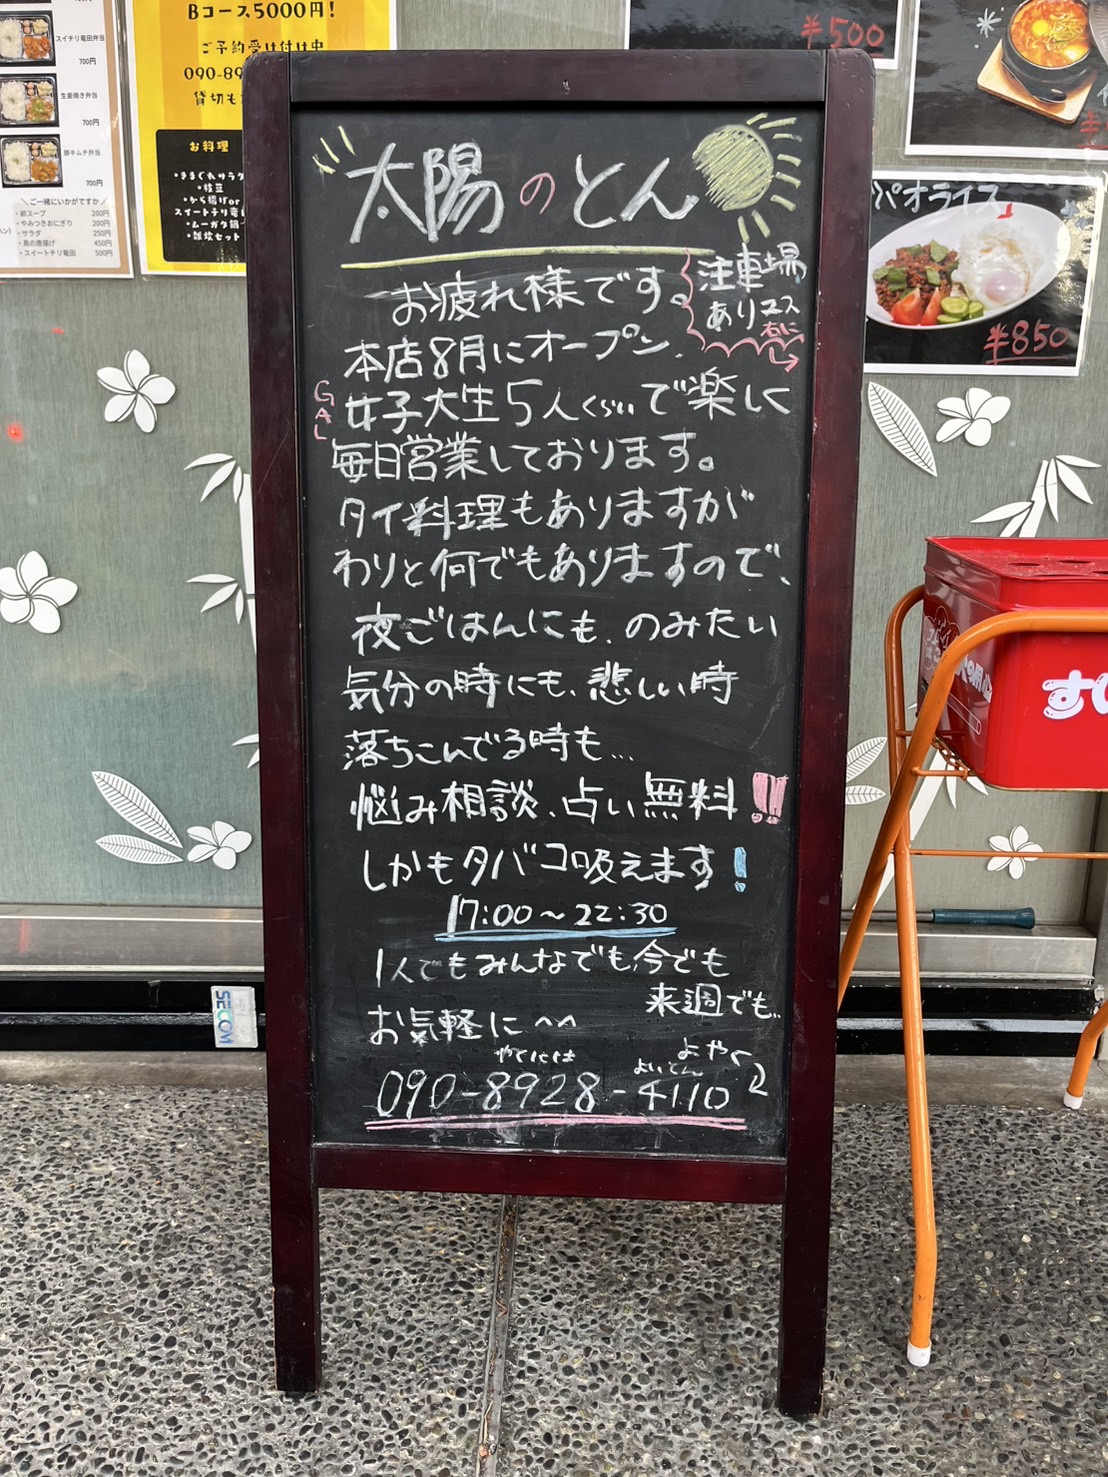 Bコース5000円!
ご予約受け付け中
090-89
貸切も
お料理
・きまぐれサラダ
・枝豆
・から揚げor
スイートチリ竜田
・ムーガタ鍋
・雑炊セット
スイチリ竜田弁当
700円
生姜焼き弁当
700円
豚キムチ弁当
700円
＼ご一緒にいかがですか／
・卵スープ 200円
・やみつきおにぎり 200円
・サラダ 250円
・鳥の唐揚げ 450円
・スイートチリ竜田 500円
¥500
パオライス
¥850
太陽のとん
お疲れ様です。
駐車場
ありマス
右に
本店8月にオープン.
GAL
女子大生5人くらいで楽しく
毎日営業しております。
タイ料理もありますが
わりと何でもありますので、
夜ごはんにも、のみたい
気分の時にも、悲しい時
落ちこんでる時も...
悩み相談、占い無料!!
しかもタバコ吸えます!
17:00～22:30
1人でもみんなでも今でも
来週でも..
お気軽に^^
よやく
090-8928-4110
SECOM